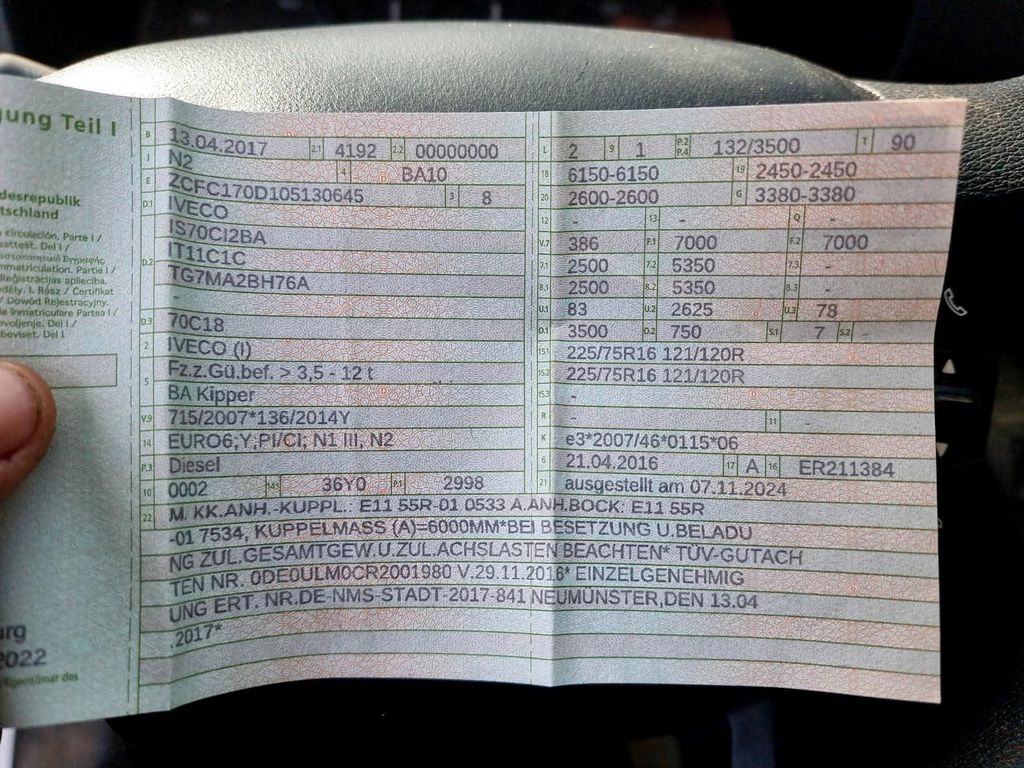 gung Teil I
desrepublik
tschland
circulación. Parte I /
B 13.04.2017 2.1 4192 2.2 00000000
J N2 4 BA10
E ZCFC170D105130645 3 8
D.1 IVECO
IS70CI2BA
D.2 IT11C1C
TG7MA2BH76A
-
D.3 70C18
2 IVECO (I)
5 Fz.z.Gü.bef. > 3,5 - 12 t
BA Kipper
V.9 715/2007*136/2014Y
14 EURO6;Y;PI/CI; N1 III, N2
P.3 Diesel
10 0002 14.1 36Y0 P.1 2998
L 2 9 1 P.2 P.4 132/3500 T 90
18 6150-6150 19 2450-2450
20 2600-2600 G 3380-3380
12 - 13 - Q -
V.7 386 F.1 7000 F.2 7000
7.1 2500 7.2 5350 7.3 -
8.1 2500 8.2 5350 8.3 -
U.1 83 U.2 2625 U.3 78
O.1 3500 O.2 750 S.1 7 S.2 -
15.1 225/75R16 121/120R
15.2 225/75R16 121/120R
15.3 -
R 11 -
K e3*2007/46*0115*06
6 21.04.2016 17 A 16 ER211384
21 ausgestellt am 07.11.2024
22 M. KK.ANH.-KUPPL.: E11 55R-01 0533 A.ANH.BOCK: E11 55R
-01 7534, KUPPELMASS (A)=6000MM*BEI BESETZUNG U.BELADU
NG ZUL.GESAMTGEW.U.ZUL.ACHSLASTEN BEACHTEN* TÜV-GUTACH
TEN NR. 0DE0ULM0CR2001980 V.29.11.2016* EINZELGENEHMIG
UNG ERT. NR.DE-NMS-STADT-2017-841 NEUMÜNSTER,DEN 13.04
.2017*
urg
2022
Eigentümer des